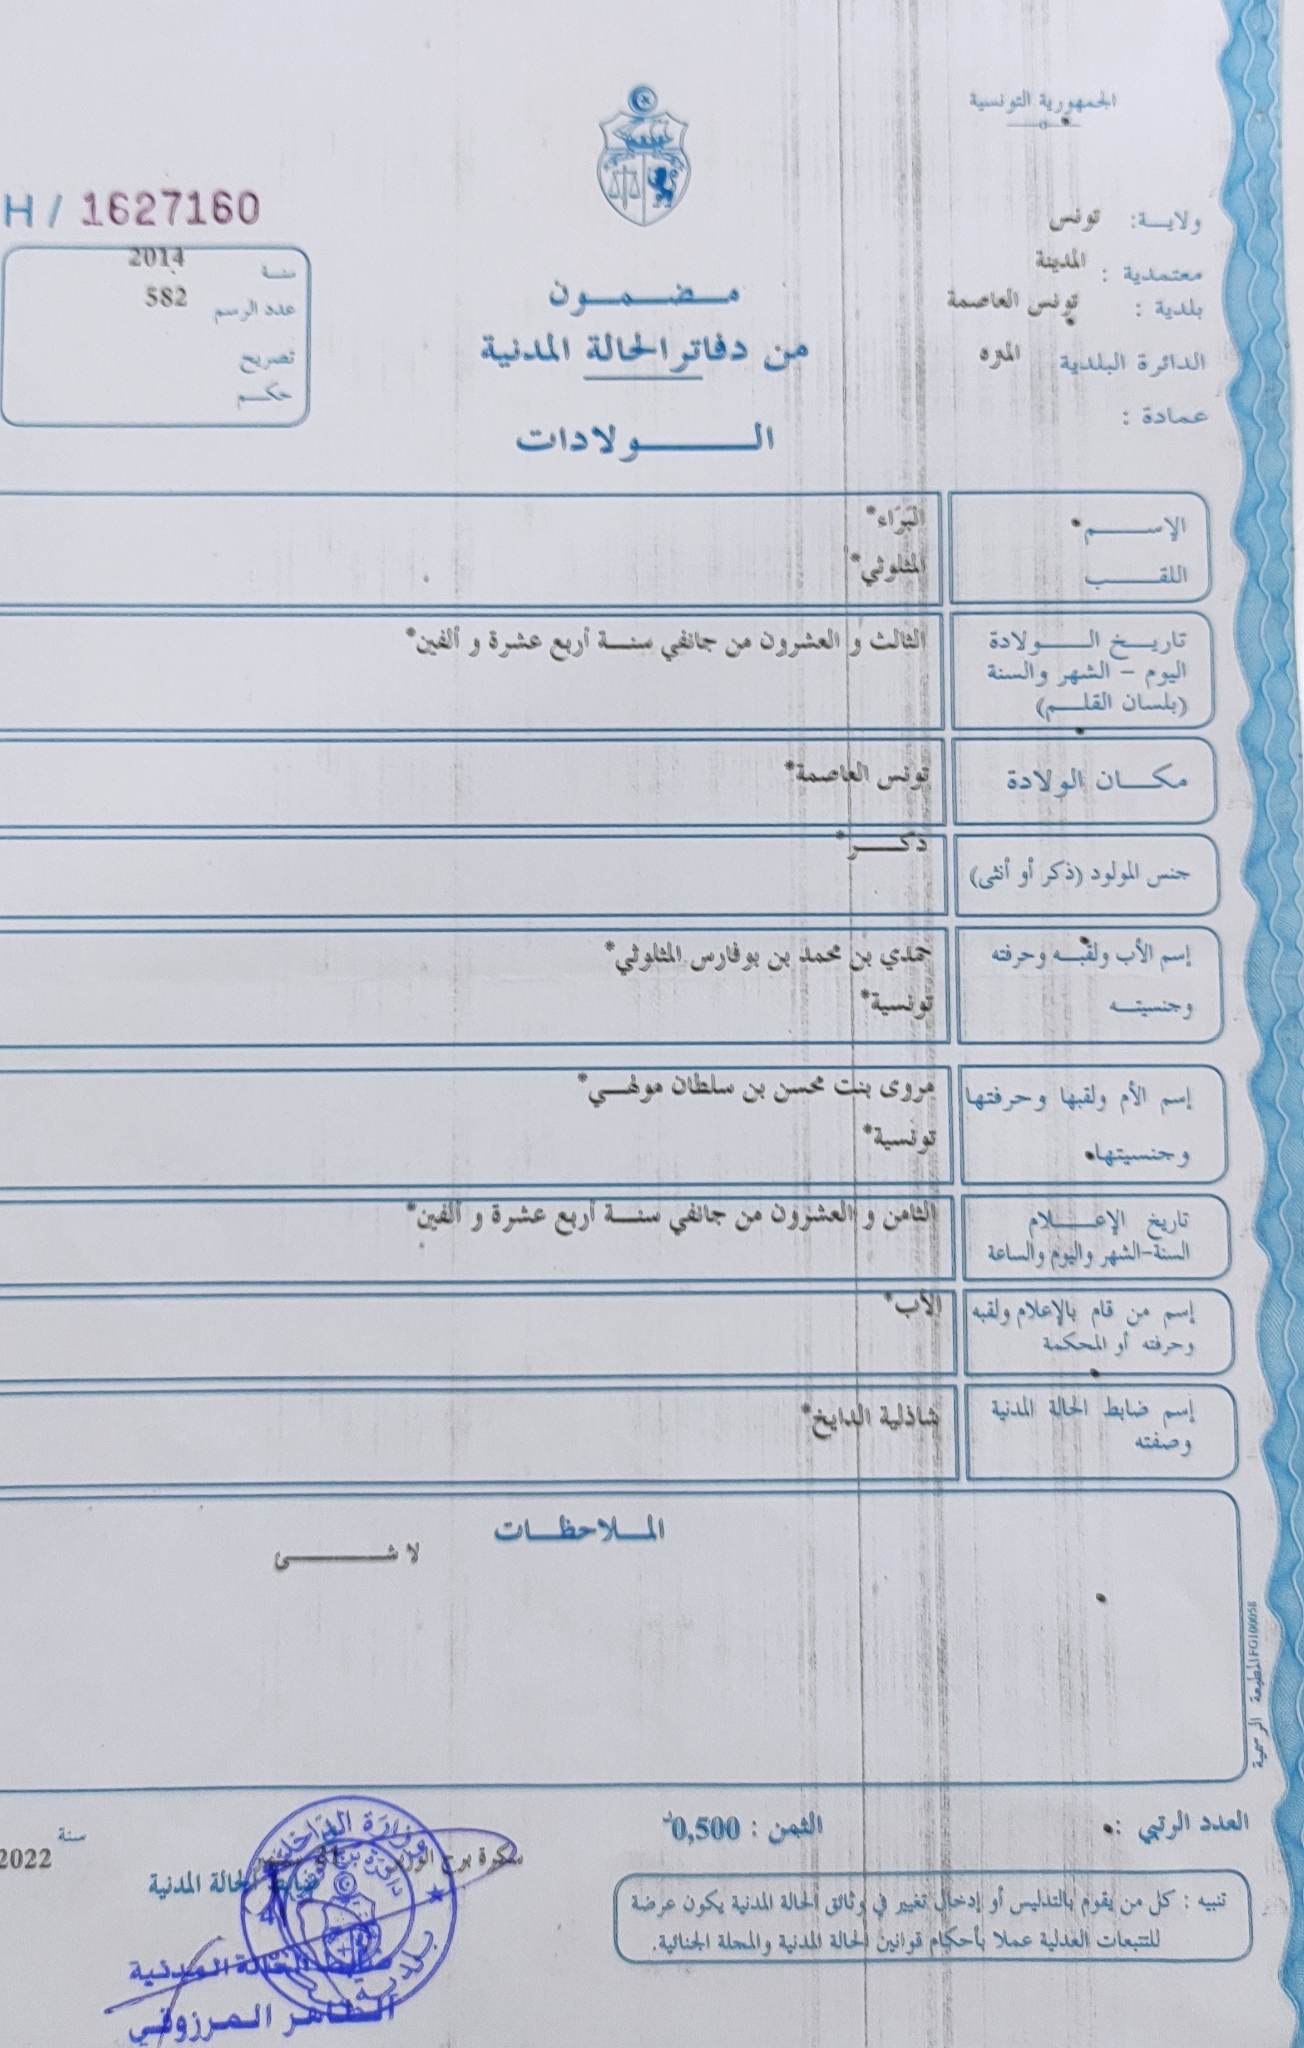 الجمهورية التونسية
ولايـــة: تونس
معتمدية : المدينة
بلدية : تونس العاصمة
الدائرة البلدية المنزه
عمادة :
H / 1627160
سنــة 2014
عدد الرسم 582
تصريح
حكــم
مـــضـــمـــون
من دفاتر الحالة المدنية
الــــــولادات
الإســـــم البَرَاء*
اللقـــــب المثلوثي*
تاريــخ الـــــولادة الثالث و العشرون من جانفي سنــة أربع عشرة و ألفين*
اليوم – الشهر والسنة
(بلسان القلـــم)
مكـــان الولادة تونس العاصمة*
جنس المولود (ذكر أو أنثى) ذكـــر*
إسم الأب ولقبـــه وحرفته حمدي بن محمد بن بوفارس المثلوثي*
وجنسيتـــه تونسية*
إسم الأم ولقبها وحرفتها مروى بنت محسن بن سلطان مولهــي*
وجنسيتها تونسية*
تاريخ الإعـــــلام الثامن و العشرون من جانفي سنــة أربع عشرة و ألفين*
السنة-الشهر واليوم والساعة
إسم من قام بالإعلام ولقبه الأب*
وحرفته أو المحكمة
إسم ضابط الحالة المدنية شاذلية الدايخ*
وصفته
المـــلاحظـــات
لا شـــــــى
المطبعة الرسمية FG100058
العدد الرتبي :
الثمن : 0,500د
سنة
2022
سكرة برج الوزير
ضابط الحالة المدنية
تنبيه : كل من يقوم بالتدليس أو إدخال تغيير في وثائق الحالة المدنية يكون عرضة
للتتبعات العدلية عملا بأحكام قوانين الحالة المدنية والمجلة الجنائية.
وزارة الداخلية
بلدية
ضابط الحالة المدنية
الطاهر المرزوقي